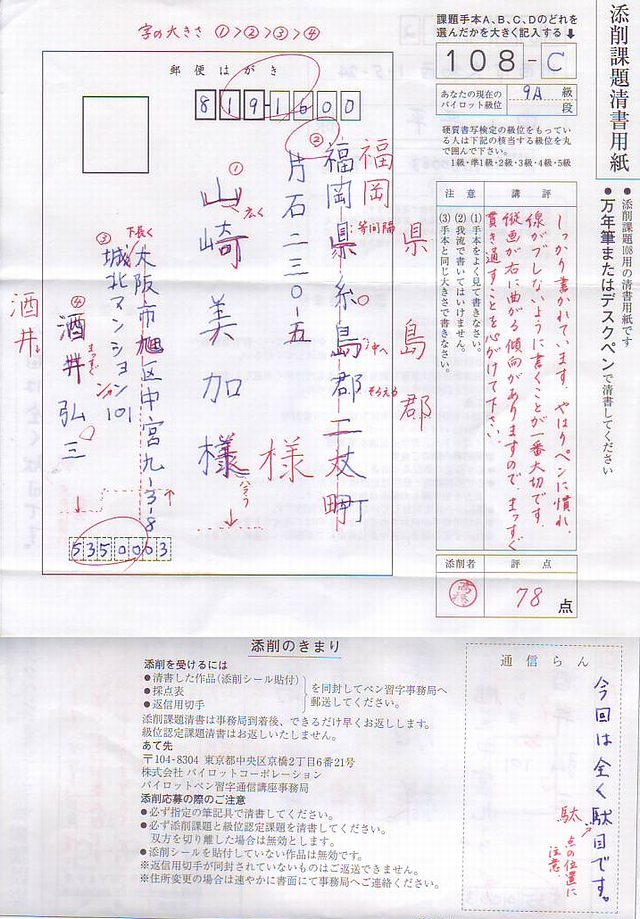 添削課題清書用紙
●添削課題108用の清書用紙です
●万年筆またはデスクペンで清書してください
課題手本A、B、C、Dのどれを
選んだかを大きく記入する
108-C
あなたの現在の
パイロット級位
9A 級
段
硬質書写検定の級位をもってい
る人は下記の該当する級位を丸
で囲んで下さい。
1級・準1級・2級・3級・4級・5級
講評
しっかり書かれています。やはりペンに慣れ、
線がブレないように書くことが一番大切です。
縦画が右に曲がる傾向がありますので、まっすぐ
貫き通すことを心がけて下さい。
注意
(1)手本をよく見て書きなさい。
(2)我流で書いてはいけません。
(3)手本と同じ大きさで書きなさい。
添削者
高橋
評点
78点
字の大きさ ①>②>③>④
郵便はがき
8191600
県 島 郡
福岡
②
福岡県糸島郡二丈町
等間隔
中へ
そろえる
片石二三〇-五
①
山崎美加様
広く
様
ハラウ
大阪市旭区中宮九-3-8
下長く
③
城北マンション101
ション
④
酒井弘三
まっすぐ
酒井
5350003
添削のきまり
添削を受けるには
●清書した作品(添削シール貼付)
●採点表
●返信用切手
を同封してペン習字事務局へ
郵送してください。
添削課題清書は事務局到着後、できるだけ早くお返しします。
級位認定課題清書はお返しいたしません。
あて先
〒104-8304 東京都中央区京橋2丁目6番21号
株式会社 パイロットコーポレーション
パイロットペン習字通信講座事務局
添削応募の際のご注意
●必ず指定の筆記具で清書してください。
●必ず添削課題と級位認定課題を清書してください。
双方を切り離した場合は無効とします。
●添削シールを貼付していない作品は無効です。
※返信用切手が同封されていないものはご返送できません。
※住所変更の場合は速やかに書面にて事務局へご連絡ください。
通信らん
今回は全く駄目です。
駄
点の位置に
注意